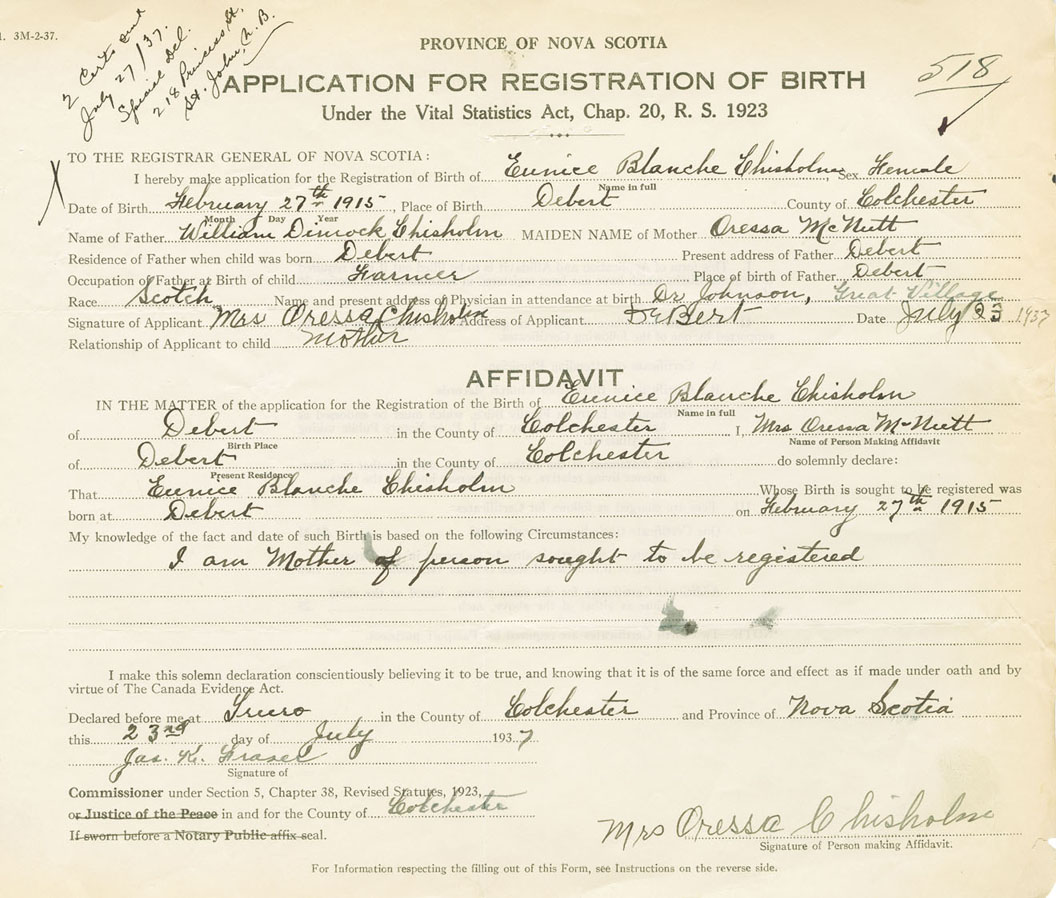 3M-2-37.
2 Certs sent
July 27/37.
Special Del.
218 Princess St.
St. John, N. B.
518
PROVINCE OF NOVA SCOTIA
APPLICATION FOR REGISTRATION OF BIRTH
Under the Vital Statistics Act, Chap. 20, R. S. 1923
TO THE REGISTRAR GENERAL OF NOVA SCOTIA:
I hereby make application for the Registration of Birth of Eunice Blanche Chisholm Sex Female
Name in full
Date of Birth February 27th 1915 Place of Birth Debert County of Colchester
Month Day Year
Name of Father William Dimock Chisholm MAIDEN NAME of Mother Oressa McNutt
Residence of Father when child was born Debert Present address of Father Debert
Occupation of Father at Birth of child Farmer Place of birth of Father Debert
Race Scotch Name and present address of Physician in attendance at birth Dr Johnson, Great Village
Signature of Applicant Mrs Oressa Chisholm Address of Applicant DeBert Date July 23 1937
Relationship of Applicant to child mother
AFFIDAVIT
IN THE MATTER of the application for the Registration of the Birth of Eunice Blanche Chisholm
Name in full
of Debert in the County of Colchester I, Mrs Oressa McNutt
Birth Place Name of Person Making Affidavit
of Debert in the County of Colchester do solemnly declare:
Present Residence
That Eunice Blanche Chisholm Whose Birth is sought to be registered was
born at Debert on February 27th 1915
My knowledge of the fact and date of such Birth is based on the following Circumstances:
I am Mother of person sought to be registered
I make this solemn declaration conscientiously believing it to be true, and knowing that it is of the same force and effect as if made under oath and by
virtue of The Canada Evidence Act.
Declared before me at Truro in the County of Colchester and Province of Nova Scotia
this 23rd day of July 1937
Jas. K. Fraser
Signature of
Commissioner under Section 5, Chapter 38, Revised Statutes, 1923,
or Justice of the Peace in and for the County of Colchester
If sworn before a Notary Public affix seal.
Mrs Oressa Chisholm
Signature of Person making Affidavit.
For Information respecting the filling out of this Form, see Instructions on the reverse side.